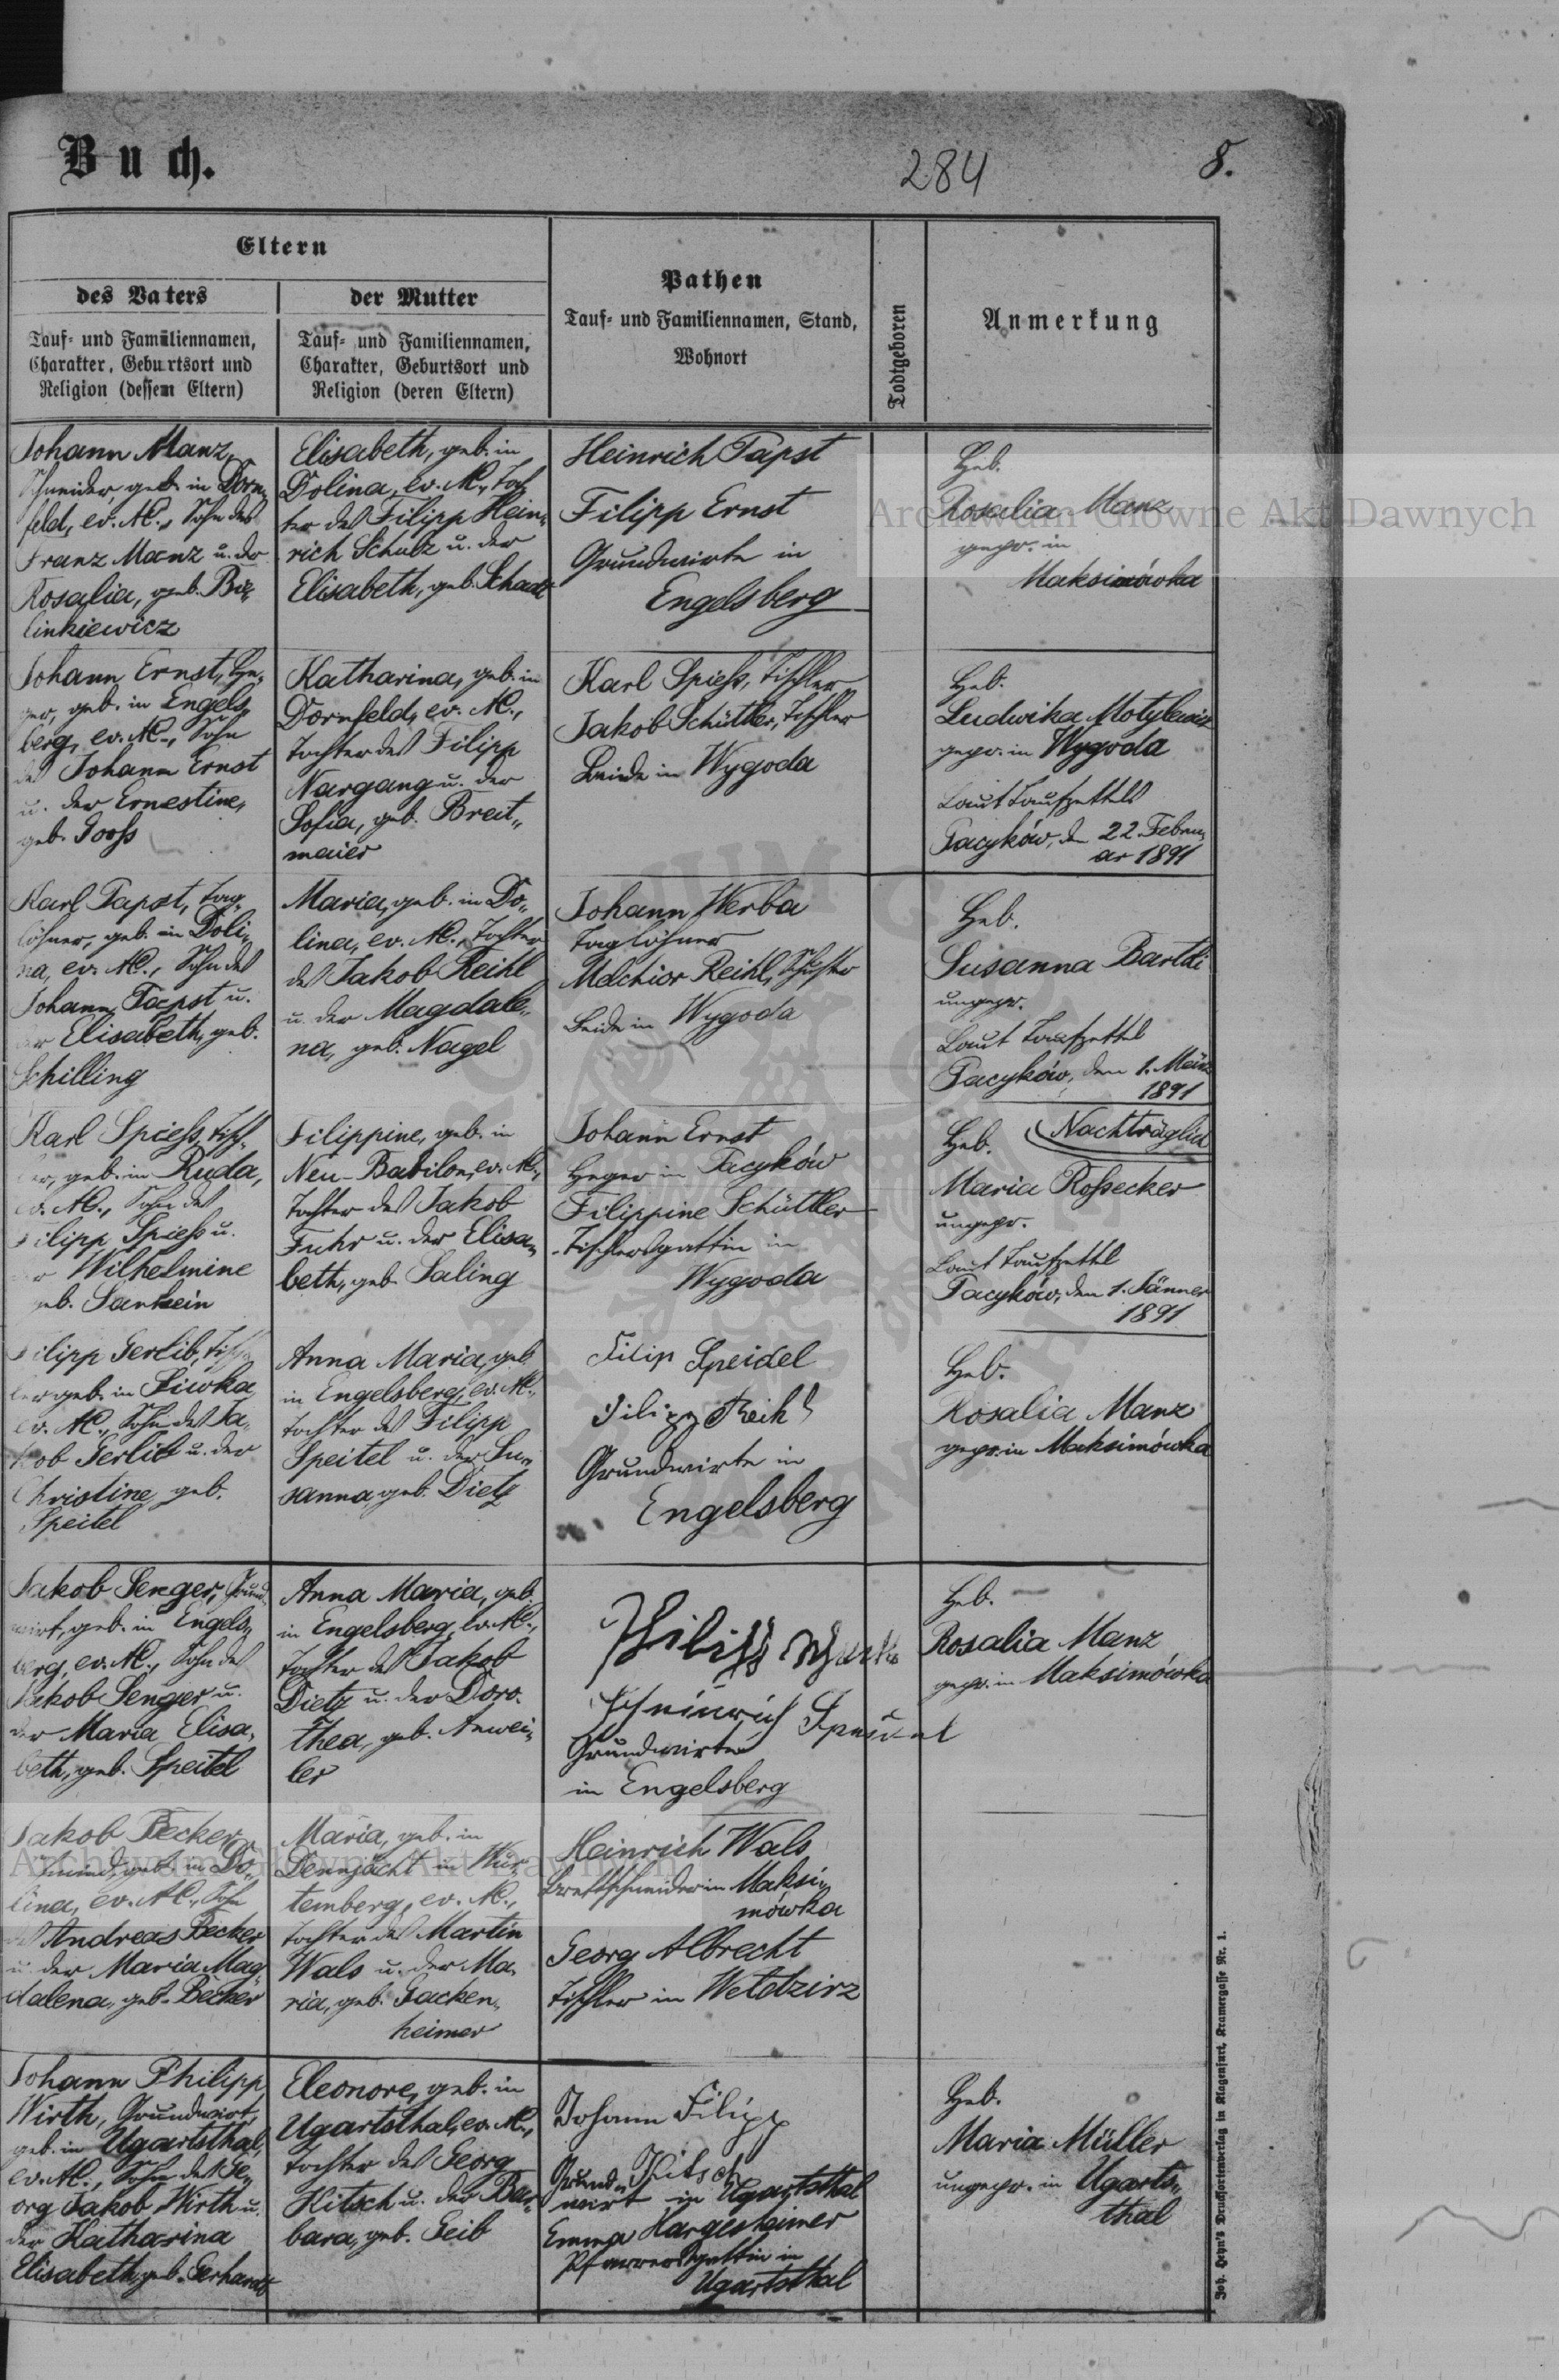 Buch.
284
8.
Eltern
des Vaters
Tauf- und Familiennamen,
Charakter, Geburtsort und
Religion (dessen Eltern)
der Mutter
Tauf- und Familiennamen,
Charakter, Geburtsort und
Religion (deren Eltern)
Pathen
Tauf- und Familiennamen, Stand,
Wohnort
Todtgeboren
Anmerkung
Johann Manz,
Schneider, geb. in Dorn„
feld, ev. AC., Sohn des
Franz Manz u. der
Rosalia, geb. Bie„
linkiewicz
Elisabeth, geb. in
Dolina, ev. AC., Toch
ter des Filipp Hein„
rich Schulz u. der
Elisabeth, geb. Schade
Heinrich Papst
Filipp Ernst
Grundwirte in
Engelsberg
Heb.
Rosalia Manz
gepr. in
Maksimówka
Johann Ernst, He„
ger, geb. in Engels„
berg, ev. AC., Sohn
des Johann Ernst
u. der Ernestine,
geb. Jooss
Katharina, geb. in
Dornfeld, ev. AC.,
Tochter des Filipp
Nargang u. der
Sofia, geb. Breit„
maier
Karl Spiess, Tischler
Jakob Schüttler, Tischler
Beide in Wygoda
Heb.
Ludwika Motylewicz
gepr. in Wygoda
Laut Taufzettels
Pacyków, den 22. Febru„
ar 1891
Karl Papst, Tag„
löhner, geb. in Doli„
na, ev. AC., Sohn des
Johann Papst u.
der Elisabeth, geb.
Schilling
Maria, geb. in Do„
lina, ev. AC., Tochter
des Jakob Reihl
u. der Magdale„
na, geb. Nagel
Johann Werba
Taglöhner
Melchior Reihl, Schuster
Beide in Wygoda
Heb.
Susanna Barthi
ungepr.
Laut Taufzettel
Pacyków, den 1. März
1891
Karl Spiess, Tisch„
ler, geb. in Ruda,
ev. AC., Sohn des
Filipp Spiess u.
der Wilhelmine
geb.
Filippine, geb. in
Neu-Babilon, ev. AC.,
Tochter des Jakob
Fuhr u. der Elisa„
beth, geb. Saling
Johann Ernst
Heger in Pacyków
Filippine Schüttler
Tischlersgattin in
Wygoda
Heb. Nachträglich
Maria Rossecker
ungepr.
Laut Taufzettel
Pacyków, den 1. Jänner
1891
Filipp Gerlib, Tisch
ler geb. in Siwka,
ev. AC., Sohn des Ja„
kob Gerlib u. der
Christine, geb.
Speitel
Anna Maria, geb.
in Engelsberg, ev. AC.,
Tochter des Filipp
Speitel u. der Su„
sanna geb. Dietz
Filip Speidel
Filipp Reihl
Grundwirte in
Engelsberg
Heb.
Rosalia Manz
gepr. in Maksimówka
Jakob Senger, Grund„
wirt, geb. in Engels„
berg, ev. AC., Sohn des
Jakob Senger u.
der Maria Elisa„
beth, geb. Speitel
Anna Maria, geb.
in Engelsberg, ev. AC.,
Tochter des Jakob
Dietz u. der Doro„
thea, geb. Anwei„
ler
Philipp
Heinrich
Grundwirte
in Engelsberg
Heb.
Rosalia Manz
gepr. in Maksimówka
Jakob Becker
Schmied, geb. in Do„
lina, ev. AC., Sohn
des Andreas Becker
u. der Maria Mag„
dalena, geb. Becker
Maria, geb. in
Dennjächt in Wür„
temberg, ev. AC.,
Tochter des Martin
Wals u. der Ma„
ria, geb. Gacken„
heimer
Heinrich Wals
Brettschneider in Maksi„
mówka
Georg Albrecht
Tischler in Weldzirz
Johann Philipp
Wirth, Grundwirt,
geb. in Ugartsthal,
ev. AC., Sohn des Ge„
org Jakob Wirth u.
der Katharina
Elisabeth, geb. Gerhardt
Eleonore, geb. in
Ugartsthal, ev. AC.,
Tochter des Georg
Kitsch u. der Bar„
bara, geb. Geib
Johann Filipp
Kitsch
Grund„
wirt in Ugartsthal
Emma Hargesheimer
Pfarrersgattin in
Ugartsthal
Heb.
Maria Müller
ungepr. in Ugarts„
thal
Joh. Heyn's Drucksortenverlag in Klagenfurt, Kramergasse Nr. 1.
Archiwum Główne Akt Dawnych
Archiwum Główne Akt Dawnych